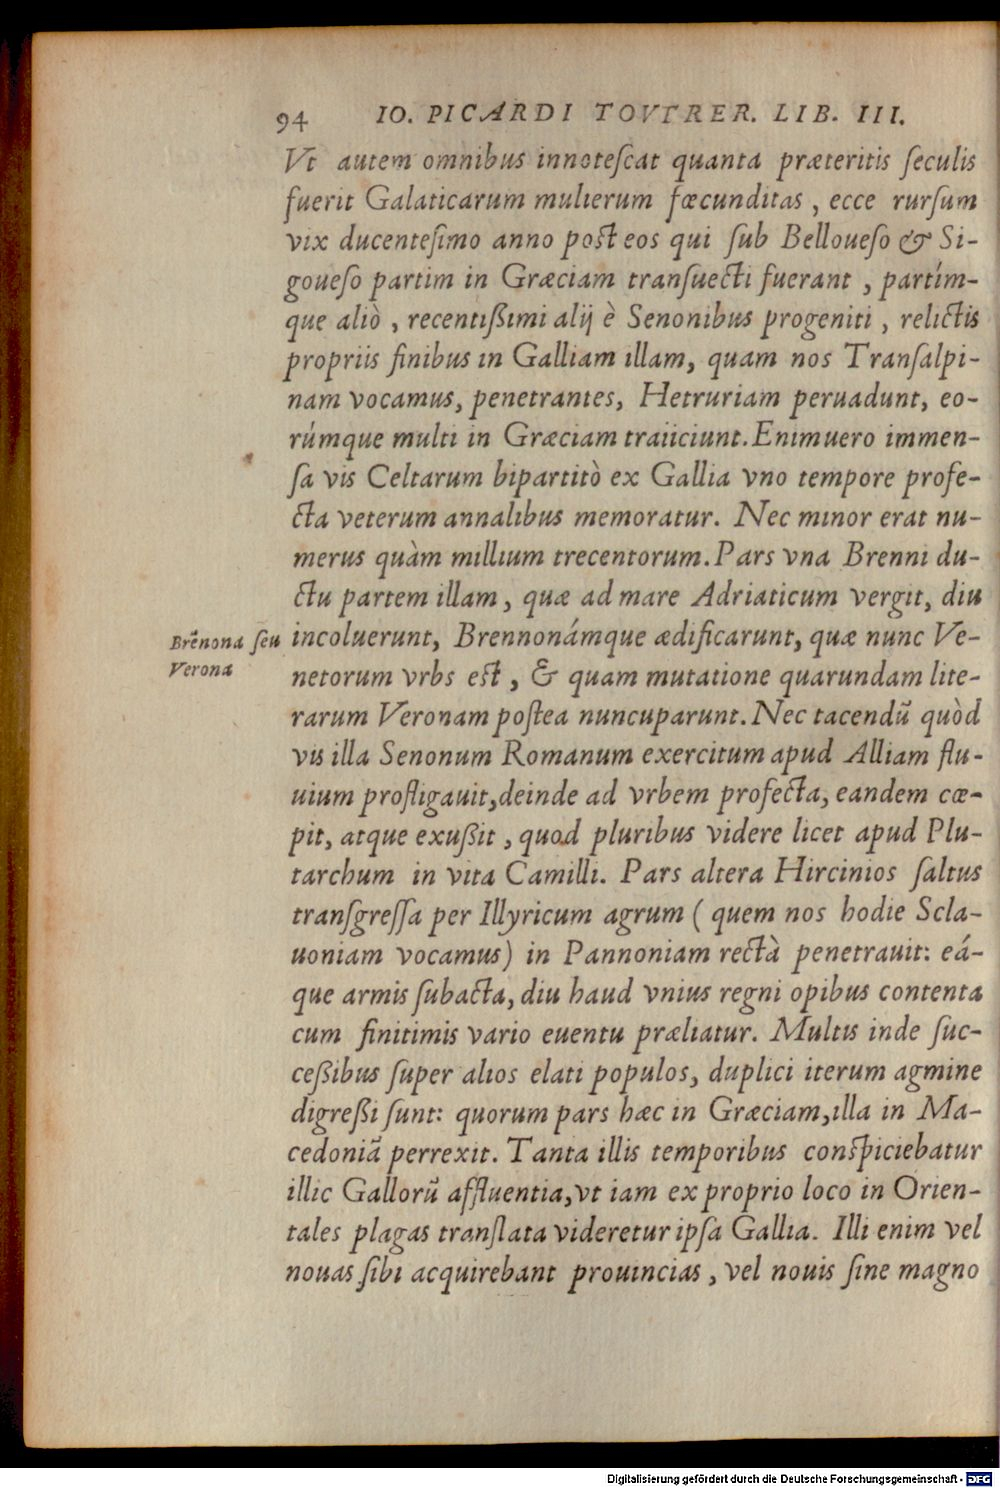 94 IO. PICARDI TOVTRER. LIB. III.
Vt autem omnibus innoteſcat quanta præteritis ſeculis
fuerit Galaticarum mulierum fœcunditas, ecce rurſum
vix ducenteſimo anno post eos qui ſub Belloueſo & Si-
goueſo partim in Græciam tranſuecti fuerant, partím-
que aliò, recentißimi alij è Senonibus progeniti, relictis
propriis finibus in Galliam illam, quam nos Tranſalpi-
nam vocamus, penetrantes, Hetruriam peruadunt, eo-
rúmque multi in Græciam traiiciunt. Enimuero immen-
ſa vis Celtarum bipartitò ex Gallia vno tempore profe-
cta veterum annalibus memoratur. Nec minor erat nu-
merus quàm millium trecentorum. Pars vna Brenni du-
ctu partem illam, quæ ad mare Adriaticum vergit, diu
Brẽnona ſeu
Verona
incoluerunt, Brennonámque ædificarunt, quæ nunc Ve-
netorum vrbs est, & quam mutatione quarundam lite-
rarum Veronam poſtea nuncuparunt. Nec tacendũ quòd
vis illa Senonum Romanum exercitum apud Alliam flu-
uium profligauit, deinde ad vrbem profecta, eandem cœ-
pit, atque exußit, quod pluribus videre licet apud Plu-
tarchum in vita Camilli. Pars altera Hircinios ſaltus
tranſgreſſa per Illyricum agrum (quem nos hodie Scla-
uoniam vocamus) in Pannoniam rectà penetrauit: eá-
que armis ſubacta, diu haud vnius regni opibus contenta
cum finitimis vario euentu præliatur. Multis inde ſuc-
ceßibus ſuper alios elati populos, duplici iterum agmine
digreßi ſunt: quorum pars hæc in Græciam, illa in Ma-
cedoniã perrexit. Tanta illis temporibus conspiciebatur
illic Gallorũ affluentia, vt iam ex proprio loco in Orien-
tales plagas tranſlata videretur ipſa Gallia. Illi enim vel
nouas ſibi acquirebant prouincias, vel nouis ſine magno
Digitalisierung gefördert durch die Deutsche Forschungsgemeinschaft - DFG